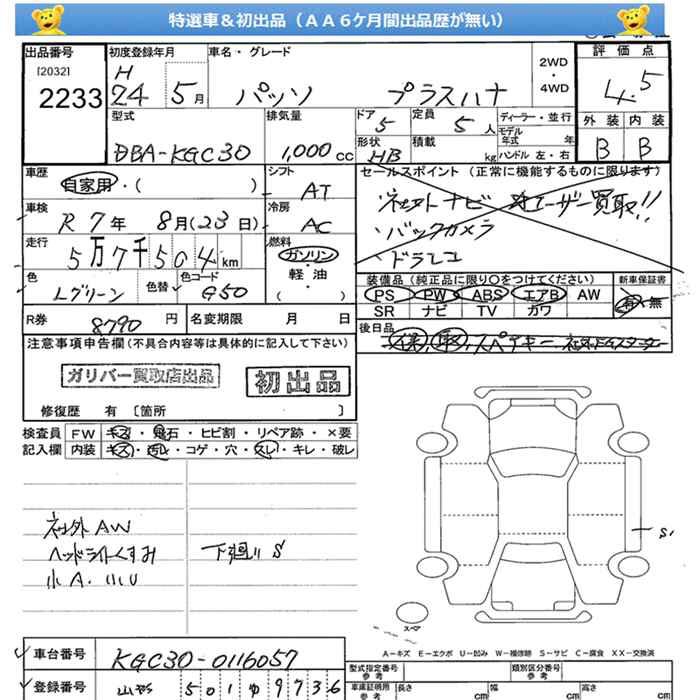 特選車＆初出品（ＡＡ６ケ月間出品歴が無い）
出品番号
[2032]
2233
初度登録年月
H
24 5月
車名・グレード
パッソ プラスハナ
2WD
・
4WD
評価点
4.5
外装 内装
B B
型式
DBA-KGC30
排気量
1,000cc
ドア
5
定員
5人
形状
HB
積載
kg
ディーラー・並行
モデル
年式 年
ハンドル 左・右
車歴
自家用・( )
シフト
AT
セールスポイント (正常に機能するものに限ります)
社外ナビ ユーザー買取!!
・バックカメラ
・ドラレコ
車検
R7年 8月(23日)
冷房
AC
走行
5万7千504km
燃料
ガソリン
・
軽・油
( )
色
Lグリーン
色替
色コード
G50
装備品(純正品に限り○をつけてください)
PS PW ABS エアB AW
SR ナビ TV カワ
新車保証書
有・無
R券
8790円
名変期限 月 日
後日品
スペアキー
注意事項申告欄(不具合内容等は具体的に記入して下さい)
ガリバー買取店出品
初出品
修復歴 有〔箇所 〕
検査員
記入欄
FW キズ・飛石・ヒビ割・リペア跡・×要
内装 キズ・汚れ・コゲ・穴・スレ・キレ・破レ
社外AW
ヘッドライトくすみ
小A.小U
下廻りS
S1
スペア
A－キズ E－エクボ U－凹み W－補修跡 S－サビ C－腐食 XX－交換済
車台番号
KGC30-0116057
登録番号
型式指定番号
参考
類別区分番号
参考
車庫証明用
参考
長さ
cm
幅
cm
高さ
cm